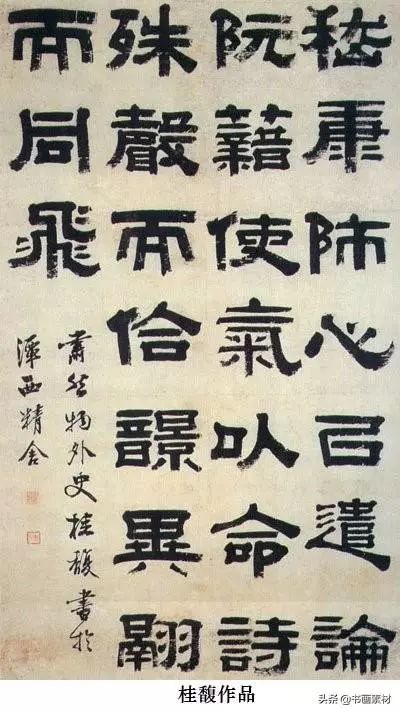 嵇康師心㠯遣論
阮藉使氣以命詩
殊聲而佮響異翮
而同飛
肅然物外史桂馥書於
潭西精舍
桂馥作品
头条 @书画素材